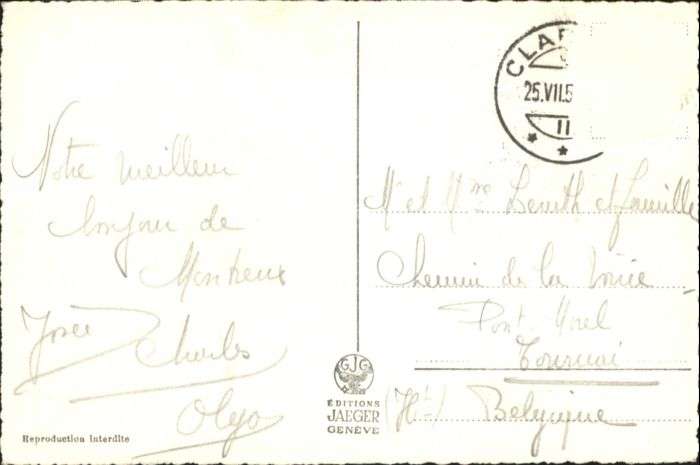 Notre meilleur
bonjour de
Montreux
Josée
Charles
Olga
Reproduction interdite
GJG
ÉDITIONS
JAEGER
GENÈVE
CLAR
25.VII.5
II
Mr et Mme et famille
Chemin de la
Pont Morel
Tournai
(Ht) Belgique